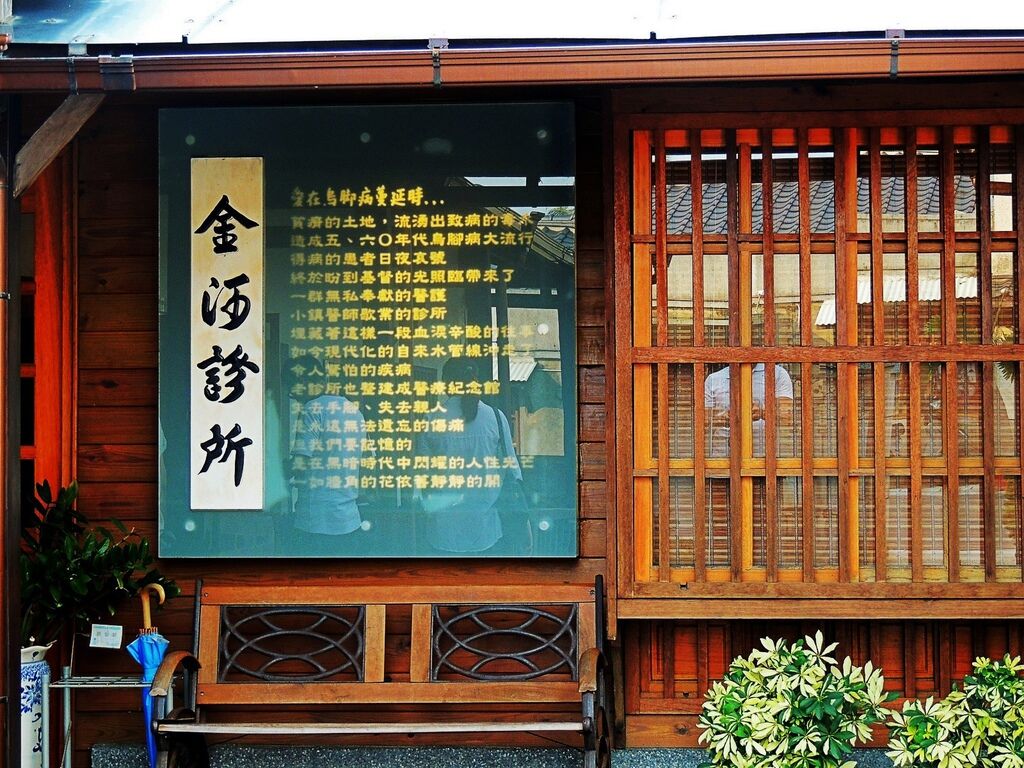 金河診所
愛在烏腳病蔓延時...
貧瘠的土地，流湧出致病的毒水
造成五、六〇年代烏腳病大流行
得病的患者日夜哀號
終於盼到基督的光照臨帶來了
一群無私奉獻的醫護
小鎮醫師歇業的診所
埋藏著這樣一段血淚辛酸的往事
如今現代化的自來水管線沖走了
令人驚怕的疾病
老診所也整建成醫療紀念館
失去手腳、失去親人
是永遠無法遺忘的傷痛
但我們要記憶的
是在黑暗時代中閃耀的人性光芒
一如牆角的花依舊靜靜的開